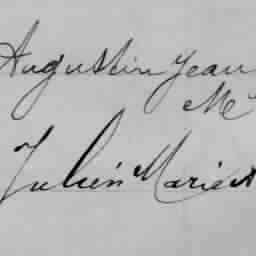 Augustin Jean
Me
Julien Marie A